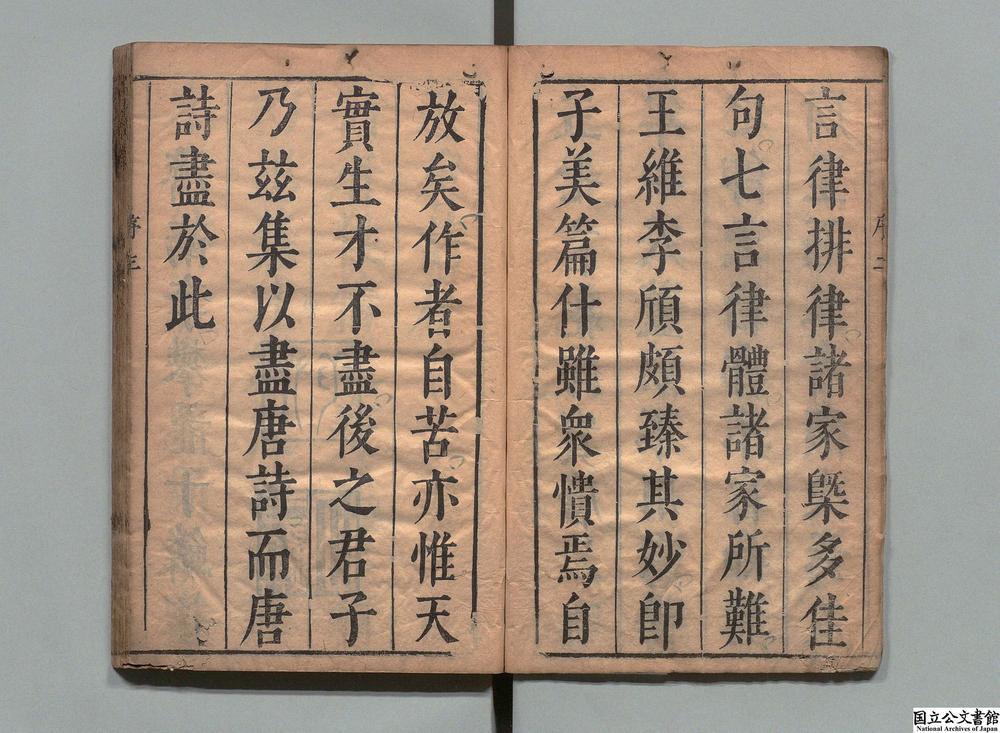 言律排律諸家槩多佳
句七言律體諸家所難
王維李頎頗臻其妙即
子美篇什雖衆憒焉自
放矣作者自苦亦惟天
實生才不盡後之君子
乃茲集以盡唐詩而唐
詩盡於此
序二
序三
国立公文書館
National Archives of Japan